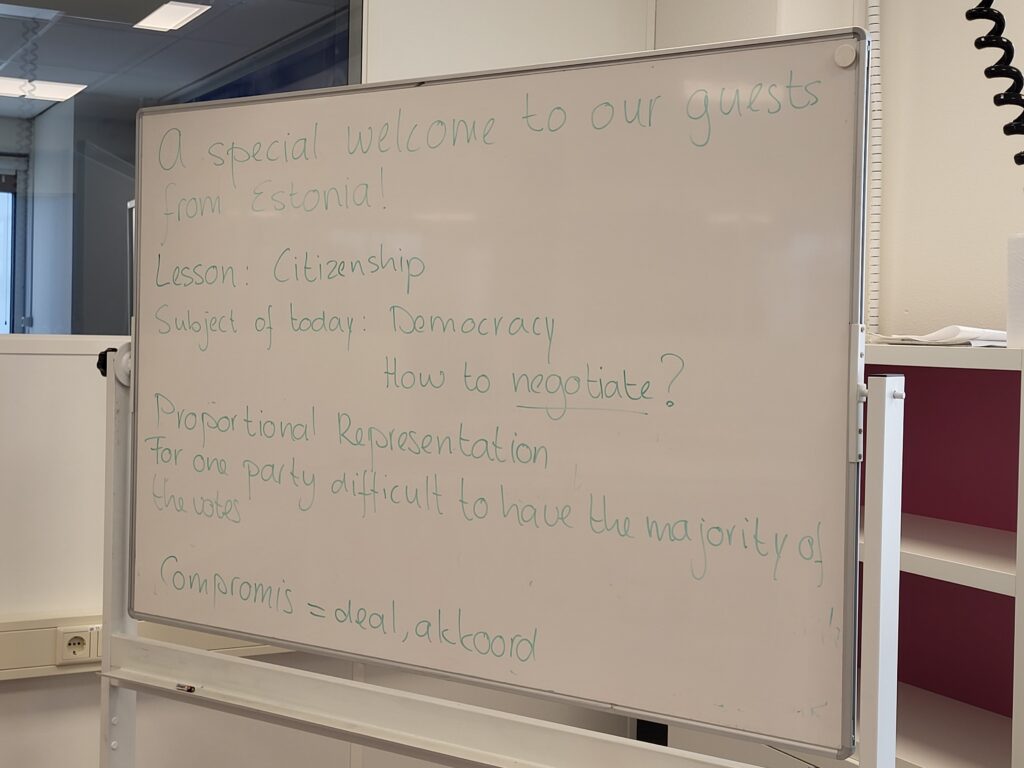 A special welcome to our guests
from Estonia!
Lesson: Citizenship
Subject of today: Democracy
How to negotiate?
Proportional Representation
For one party difficult to have the majority of
the votes
Compromis = deal, akkoord